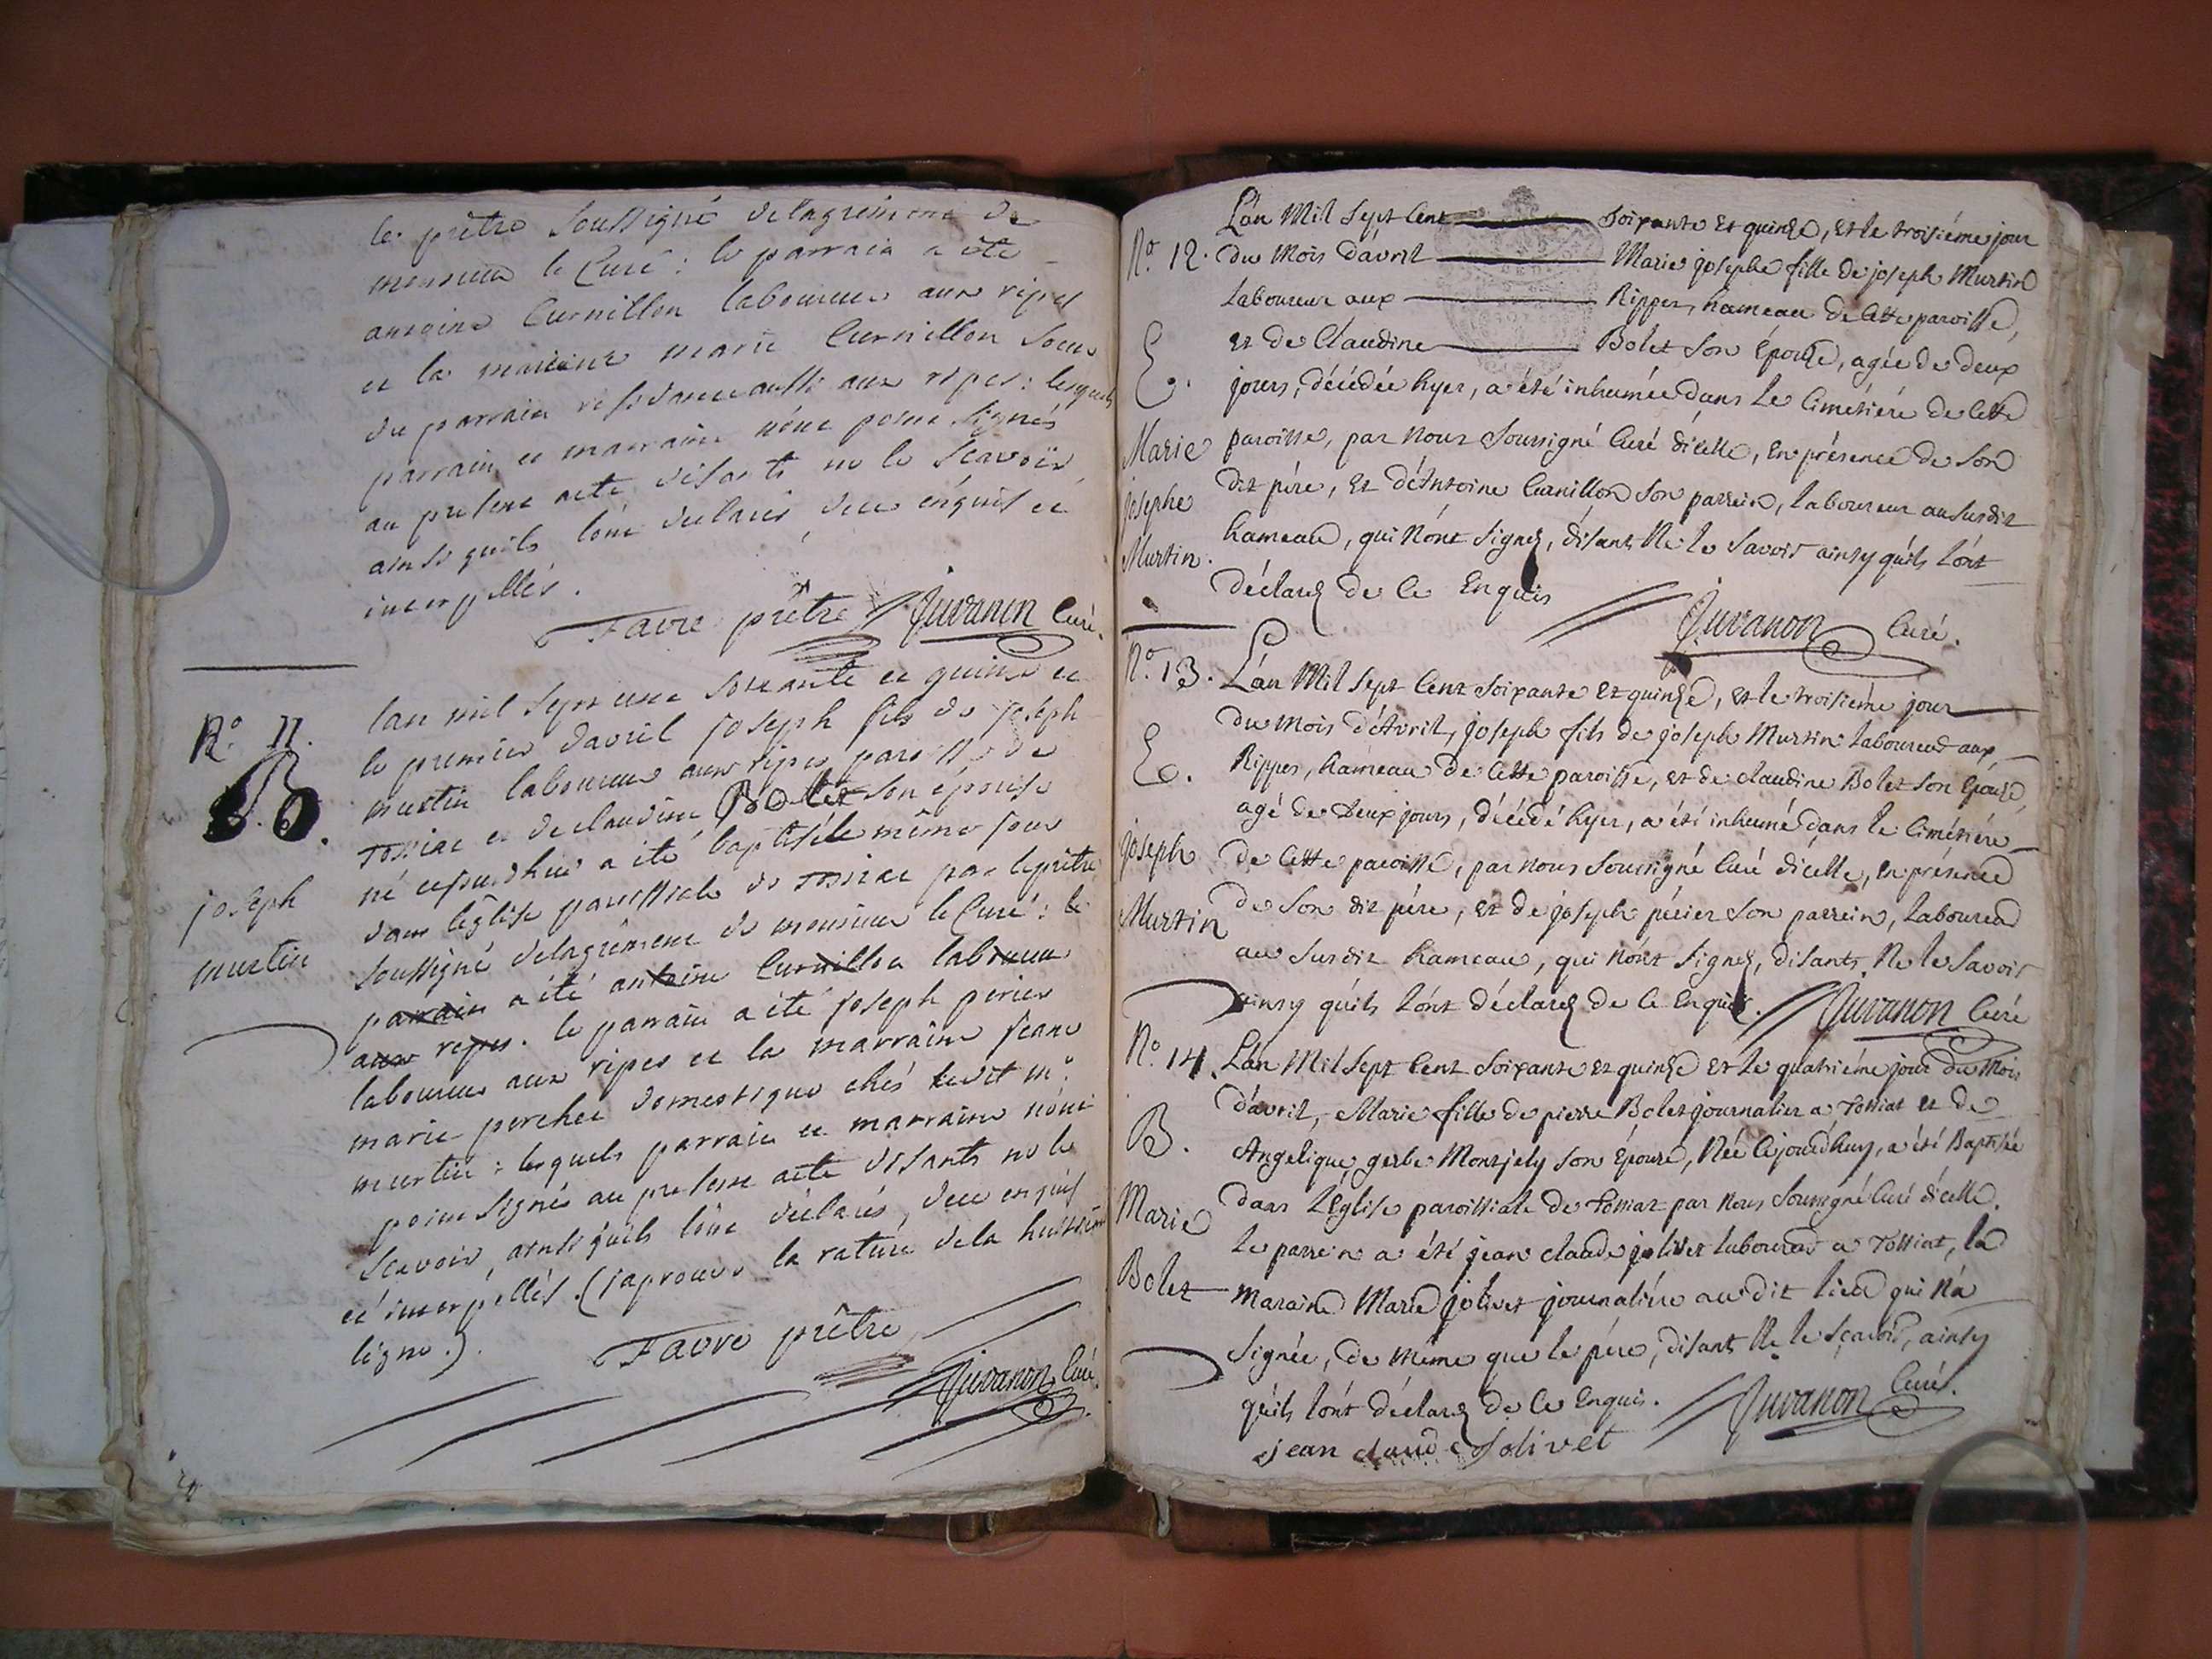 le prêtre soussigné de lagrément de
monsieur le Curé : le parrain a été
antoine Curnillon laboureur aux ripes
et la marraine marie Curnillon soeur
du parrain residante aussi aux ripes : lesquels
parrain et marraine n'ont point signés
au present acte disants ne le sçavoir
ainsi quils l'ont declarés de ce enquis et
interpellés.
Favre prêtre Juvanon Curé.
No. 11.
B.
joseph
murtin
lan mil sept cent soixante et quinze et
le premier davril joseph fils de joseph
murtin laboureur aux ripes paroisse de
Tossiat et de claudine Bolet son épouse
né cejourdhui a été baptisé le même jour
dans léglise paroissiale de Tossiat par le prêtre
soussigné de lagrément de monsieur le Curé : le
parrain a été antoine Curnillon laboureur
aux ripes. le parrain a été joseph perier
laboureur aux ripes et la marraine jeane
marie perchet domestique chés ledit m.
murtin : lesquels parrain et marraine n'ont
point signés au present acte disants ne le
scavoir, ainsi quils l'ont déclarés, de ce enquis
et interpellés. (japrouve la rature de la huitième
ligne.)
Favre prêtre
Juvanon Curé.
No. 12.
E.
Marie
josephe
Murtin.
L'an Mil Sept Cent soixante et quinze, et le troisiéme jour
du Mois d'avril Marie josephe fille de joseph Murtin
Laboureur aux Rippes, hameau de Cette paroisse,
et de Claudine Bolet son Épouse, agée de deux
jours, décédée hyer, a été inhumée dans le Cimétiére de Cette
paroisse, par Nous Soussigné Curé d'icelle, En présence de Son
dit pére, et d'Antoine Curnillon son parrein, Laboureur au susdit
hameau, qui N'ont signez, disants Ne le Savoir ainsy qu'ils L'ont
déclarez de Ce Enquis
Juvanon Curé.
No. 13.
E.
joseph
Murtin
L'an Mil Sept Cent soixante et quinze, et le troisiéme jour
du Mois d'Avril, joseph fils de joseph Murtin Laboureur aux
Rippes, hameau de Cette paroisse, et de claudine Bolet son Épouse,
agé de Deux jours, décédé hyer, a été inhumé dans le Cimétiére
de Cette paroisse, par nous Soussigné Curé d'icelle, en présence
de Son dit pére, et de joseph périer son parrein, Laboureur
au susdit hameau, qui N'ont signez, disants Ne le Savoir
ainsy qu'ils L'ont déclarez de Ce Enquis. Juvanon Curé
No. 14.
B.
Marie
Bolet
L'an Mil Sept Cent soixante et quinze et le quatriéme jour du Mois
d'avril, Marie fille de pierre Bolet journalier a Tossiat et de
Angelique gerbe Montjely son Épouse, Née Cejourdhuy, a été Baptisée
dans L'Église paroissiale de Tossiat par Nous Soussigné Curé d'icelle.
Le parrein a été jean claude jolivet Laboureur a Tossiat, la
maraine Marie jolivet journaliére audit Lieu qui N'a
signée, de même que le pére, disants Ne le sçavoir, ainsy
qu'ils L'ont déclarez de Ce Enquis. Juvanon Curé.
jean claude Jolivet